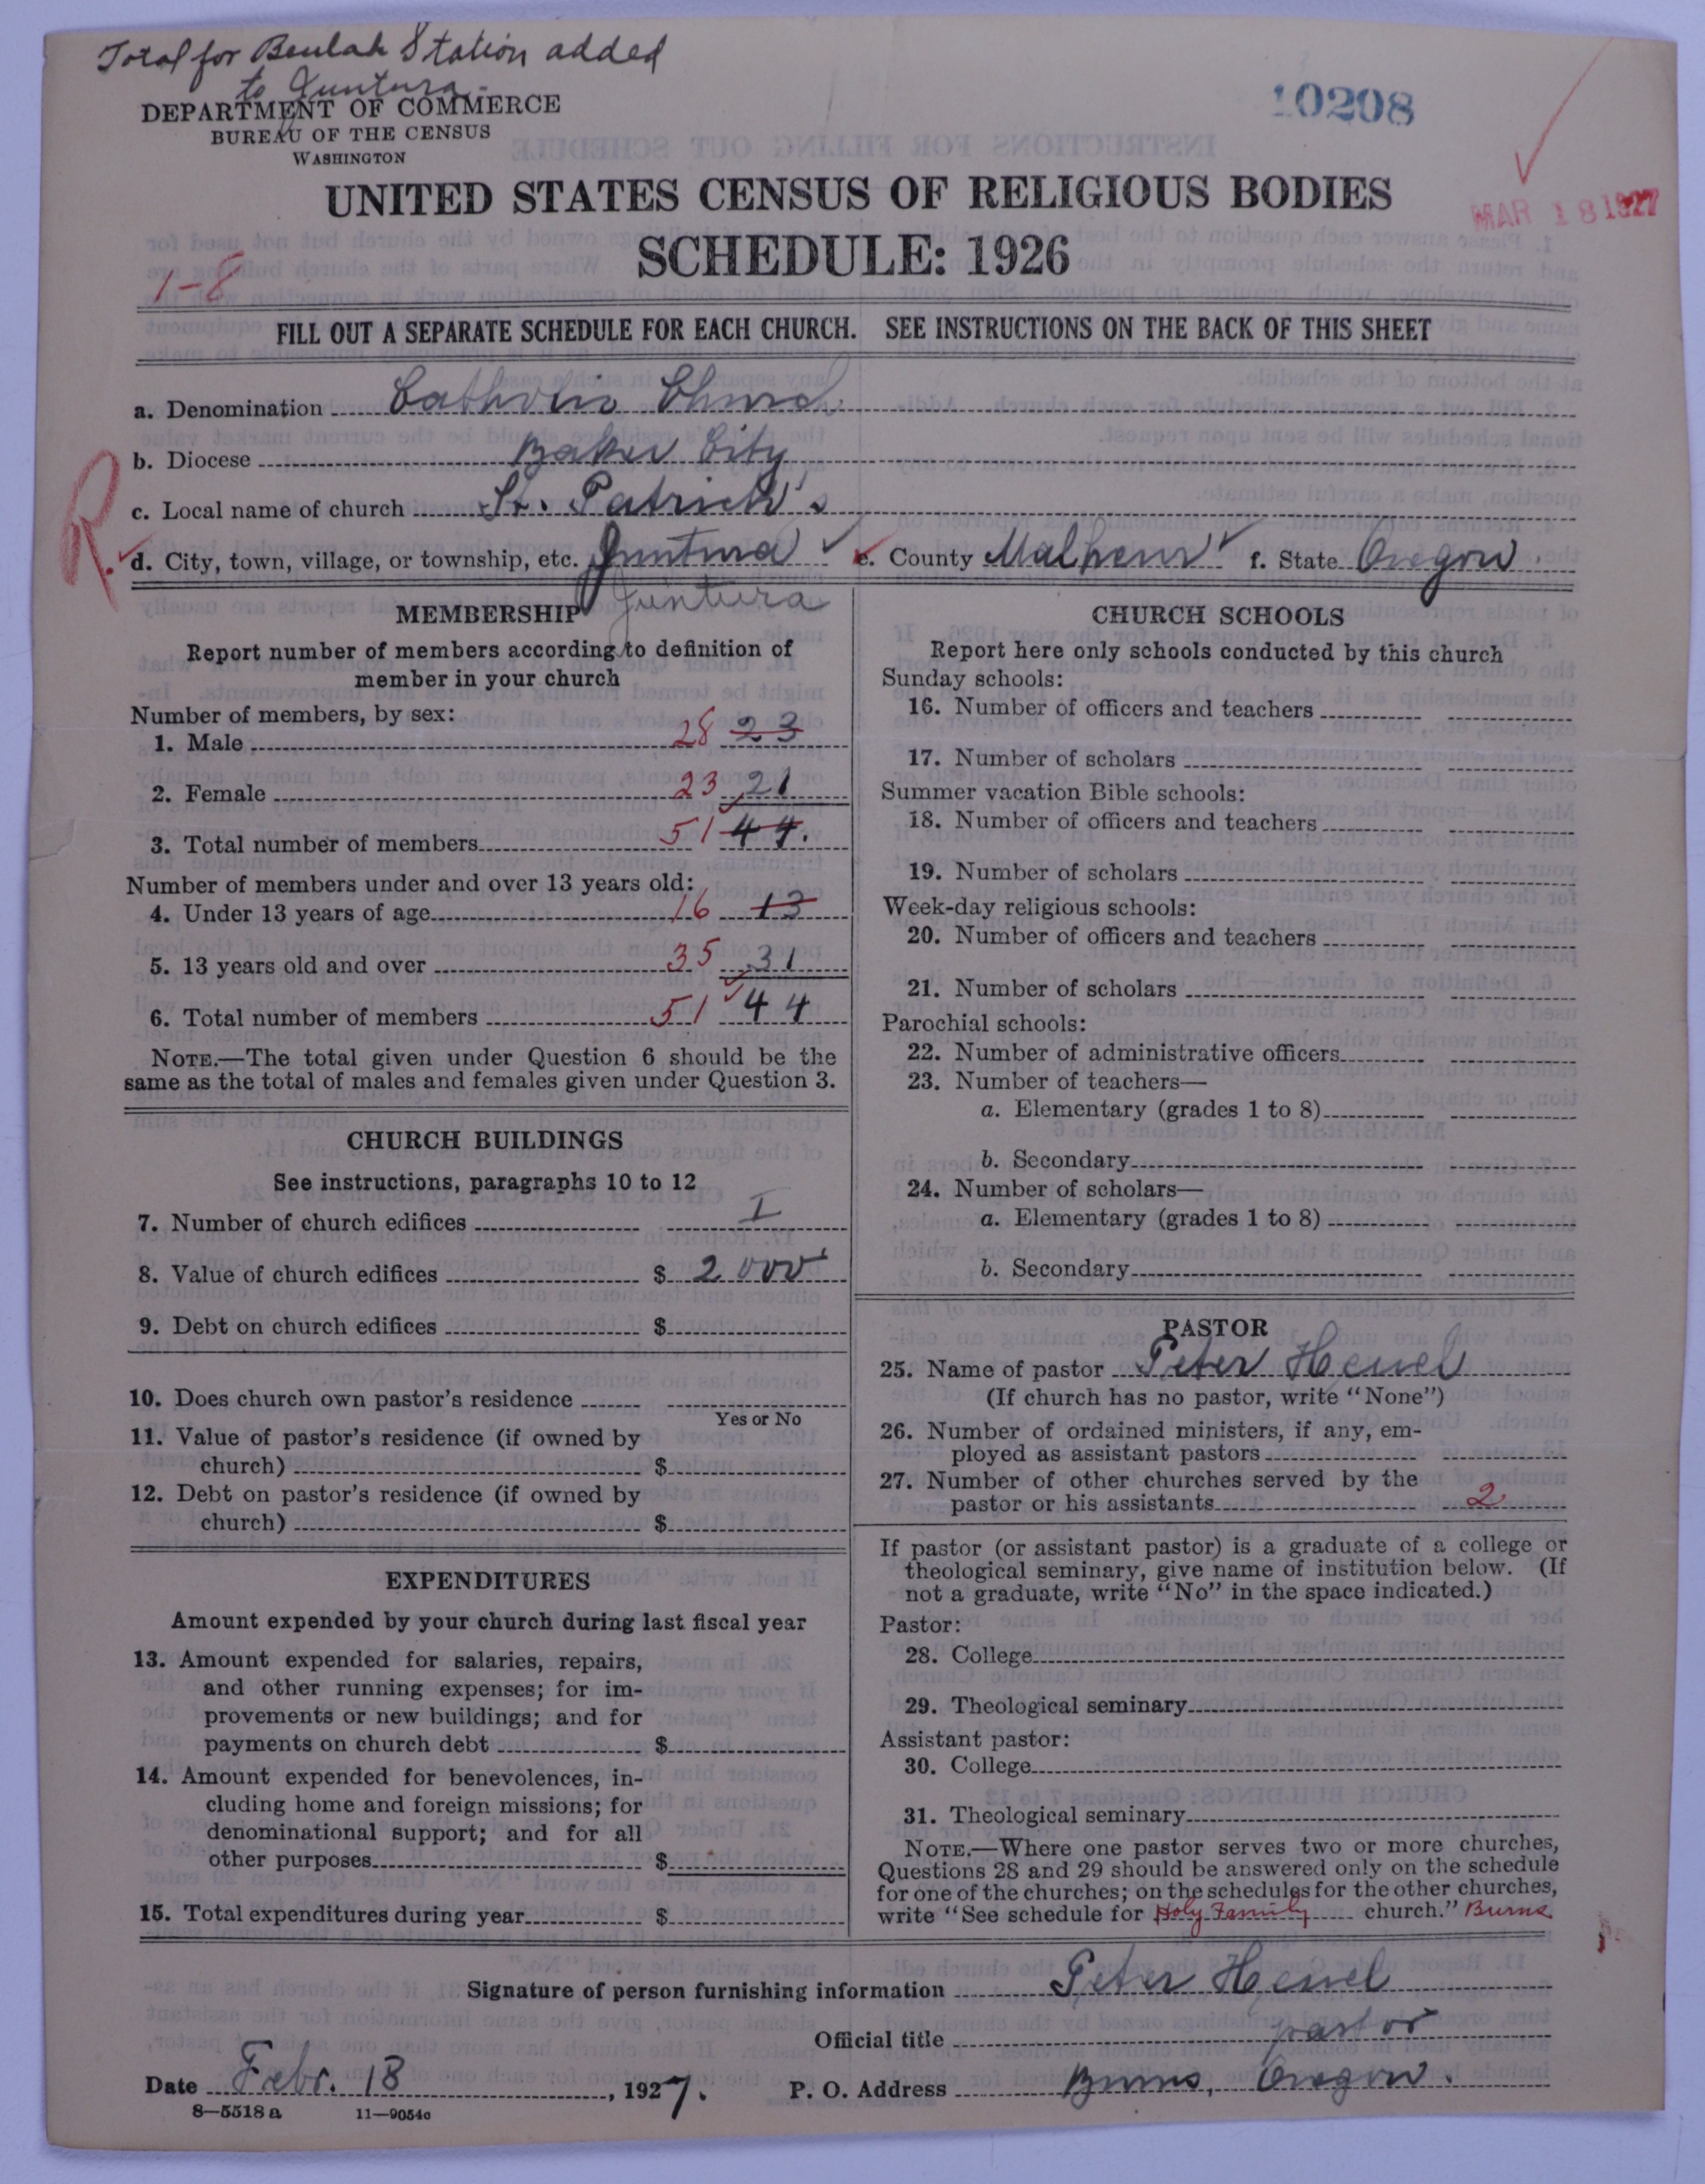 Total for Beulah Station added
to Juntura.
10208
DEPARTMENT OF COMMERCE
BUREAU OF THE CENSUS
WASHINGTON
UNITED STATES CENSUS OF RELIGIOUS BODIES
MAR 18 1927
SCHEDULE: 1926
1-8
FILL OUT A SEPARATE SCHEDULE FOR EACH CHURCH. SEE INSTRUCTIONS ON THE BACK OF THIS SHEET
a. Denomination Catholic Church
b. Diocese Baker City
c. Local name of church St. Patrick's
R.
d. City, town, village, or township, etc. Juntura e. County Malheur f. State Oregon
Juntura
MEMBERSHIP
Report number of members according to definition of
member in your church
Number of members, by sex:
1. Male 28 23
2. Female 23 21
3. Total number of members 51 44.
Number of members under and over 13 years old:
4. Under 13 years of age 16 13
5. 13 years old and over 35 31
6. Total number of members 51 44
NOTE.—The total given under Question 6 should be the
same as the total of males and females given under Question 3.
CHURCH BUILDINGS
See instructions, paragraphs 10 to 12
7. Number of church edifices I
8. Value of church edifices $ 2000
9. Debt on church edifices $
10. Does church own pastor's residence
Yes or No
11. Value of pastor's residence (if owned by
church) $
12. Debt on pastor's residence (if owned by
church) $
EXPENDITURES
Amount expended by your church during last fiscal year
13. Amount expended for salaries, repairs,
and other running expenses; for im-
provements or new buildings; and for
payments on church debt $
14. Amount expended for benevolences, in-
cluding home and foreign missions; for
denominational support; and for all
other purposes $
15. Total expenditures during year $
CHURCH SCHOOLS
Report here only schools conducted by this church
Sunday schools:
16. Number of officers and teachers
17. Number of scholars
Summer vacation Bible schools:
18. Number of officers and teachers
19. Number of scholars
Week-day religious schools:
20. Number of officers and teachers
21. Number of scholars
Parochial schools:
22. Number of administrative officers
23. Number of teachers—
a. Elementary (grades 1 to 8)
b. Secondary
24. Number of scholars—
a. Elementary (grades 1 to 8)
b. Secondary
PASTOR
25. Name of pastor Peter Heuel
(If church has no pastor, write "None")
26. Number of ordained ministers, if any, em-
ployed as assistant pastors
27. Number of other churches served by the
pastor or his assistants 2
If pastor (or assistant pastor) is a graduate of a college or
theological seminary, give name of institution below. (If
not a graduate, write "No" in the space indicated.)
Pastor:
28. College
29. Theological seminary
Assistant pastor:
30. College
31. Theological seminary
NOTE.—Where one pastor serves two or more churches,
Questions 28 and 29 should be answered only on the schedule
for one of the churches; on the schedules for the other churches,
write "See schedule for Holy Family church." Burns
Signature of person furnishing information Peter Heuel
Official title pastor
Date Febr. 18, 1927. P. O. Address Burns, Oregon.
8—5518 a 11—9054c